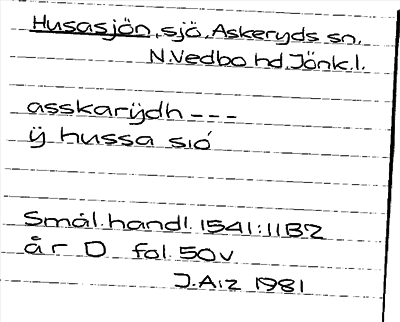 Husasjön, sjö, Askeryds sn.
N.Vedbo hd, Jönk.l.
asskarÿdh ---
ÿ hussa sió
Smål.handl. 1541:11B2
år D fol. 50v
J.A:z 1981